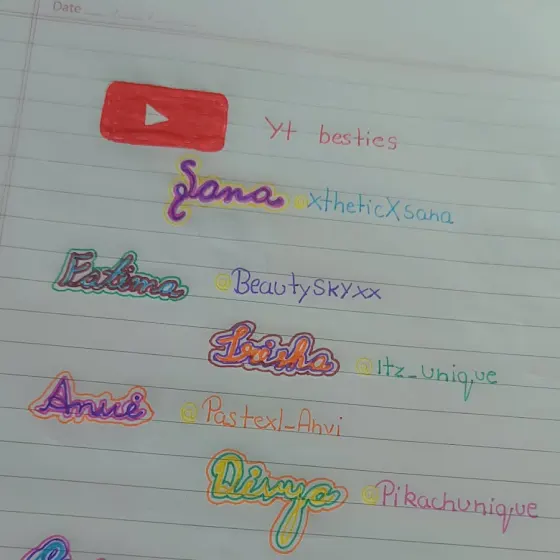 Date
Yt besties
Sana @xtheticXsana
Fatima @BeautySkyxx
Irisha @Itz_unique
Anvi @Pastexl_Anvi
Divya @Pikachunique